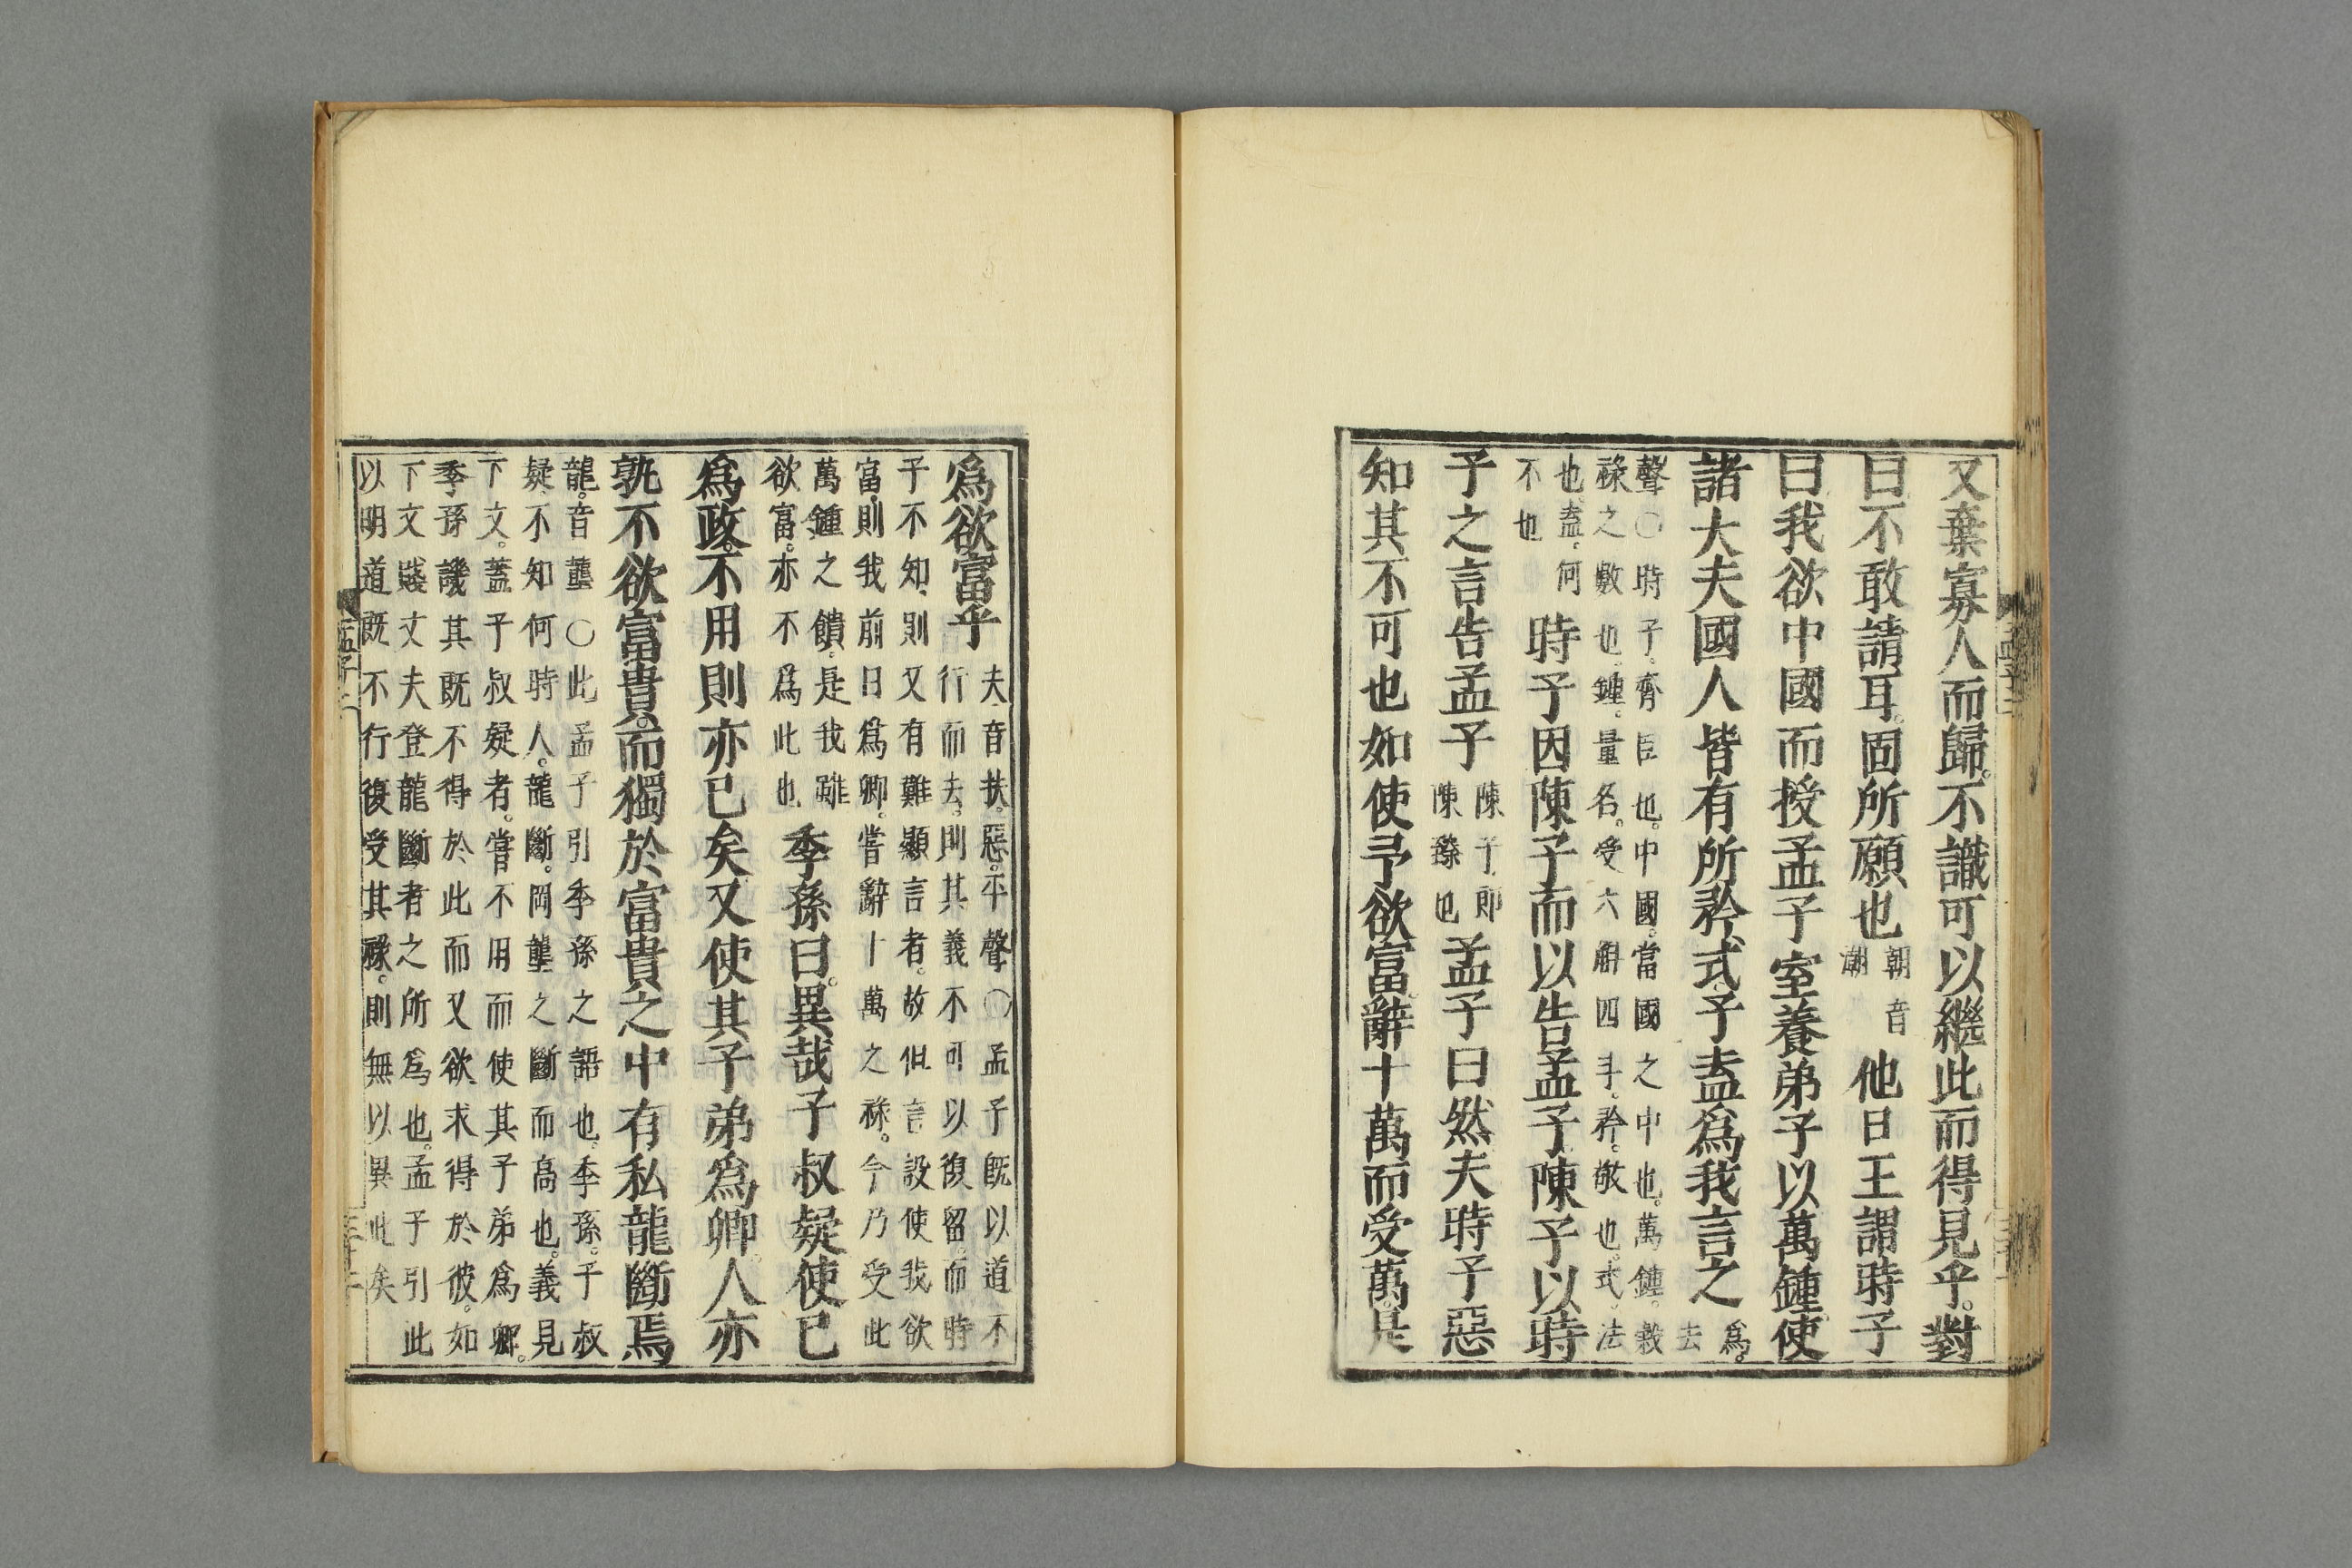 又棄寡人而歸。不識可以繼此而得見乎。對
曰不敢請耳。固所願也
朝音
潮
他日王謂時子
曰我欲中國而授孟子室養弟子以萬鍾使
諸大夫國人皆有所矜式子盍爲我言之
爲。
去
聲〇時子。齊臣也。中國。當國之中也。萬鍾。穀
祿之數也。鍾。量名。受六斛四斗。矜。敬也。式。法
也。盍。何
不也
時子因陳子而以告孟子。陳子以時
子之言告孟子
陳子。即
陳臻也
孟子曰然夫時子惡
知其不可也如使予欲富。辭十萬而受萬。是
爲欲富乎
夫。音扶。惡。平聲〇孟子既以道不
行而去。則其義不可以復留。而時
子不知。則又有難顯言者。故但言設使我欲
富。則我前日爲卿。嘗辭十萬之祿。今乃受此
萬鍾之饋。是我雖
欲富。亦不爲此也
季孫曰。異哉子叔疑使己
爲政。不用則亦已矣又使其子弟爲卿。人亦
孰不欲富貴。而獨於富貴之中有私龍斷焉
龍。音壟〇此孟子引季孫之語也。季孫。子叔
疑。不知何時人。龍斷。岡壟之斷而高也。義見
下文。蓋子叔疑者。嘗不用而使其子弟爲卿。
季孫譏其既不得於此而又欲求得於彼。如
下文賤丈夫登龍斷者之所爲也。孟子引此
以明道既不行復受其祿。則無以異此矣